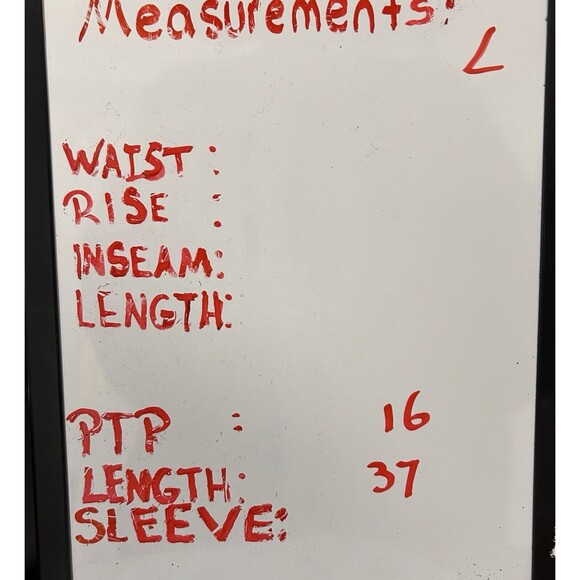 Measurements:
L
WAIST :
RISE :
INSEAM:
LENGTH:
PTP : 16
LENGTH: 37
SLEEVE: